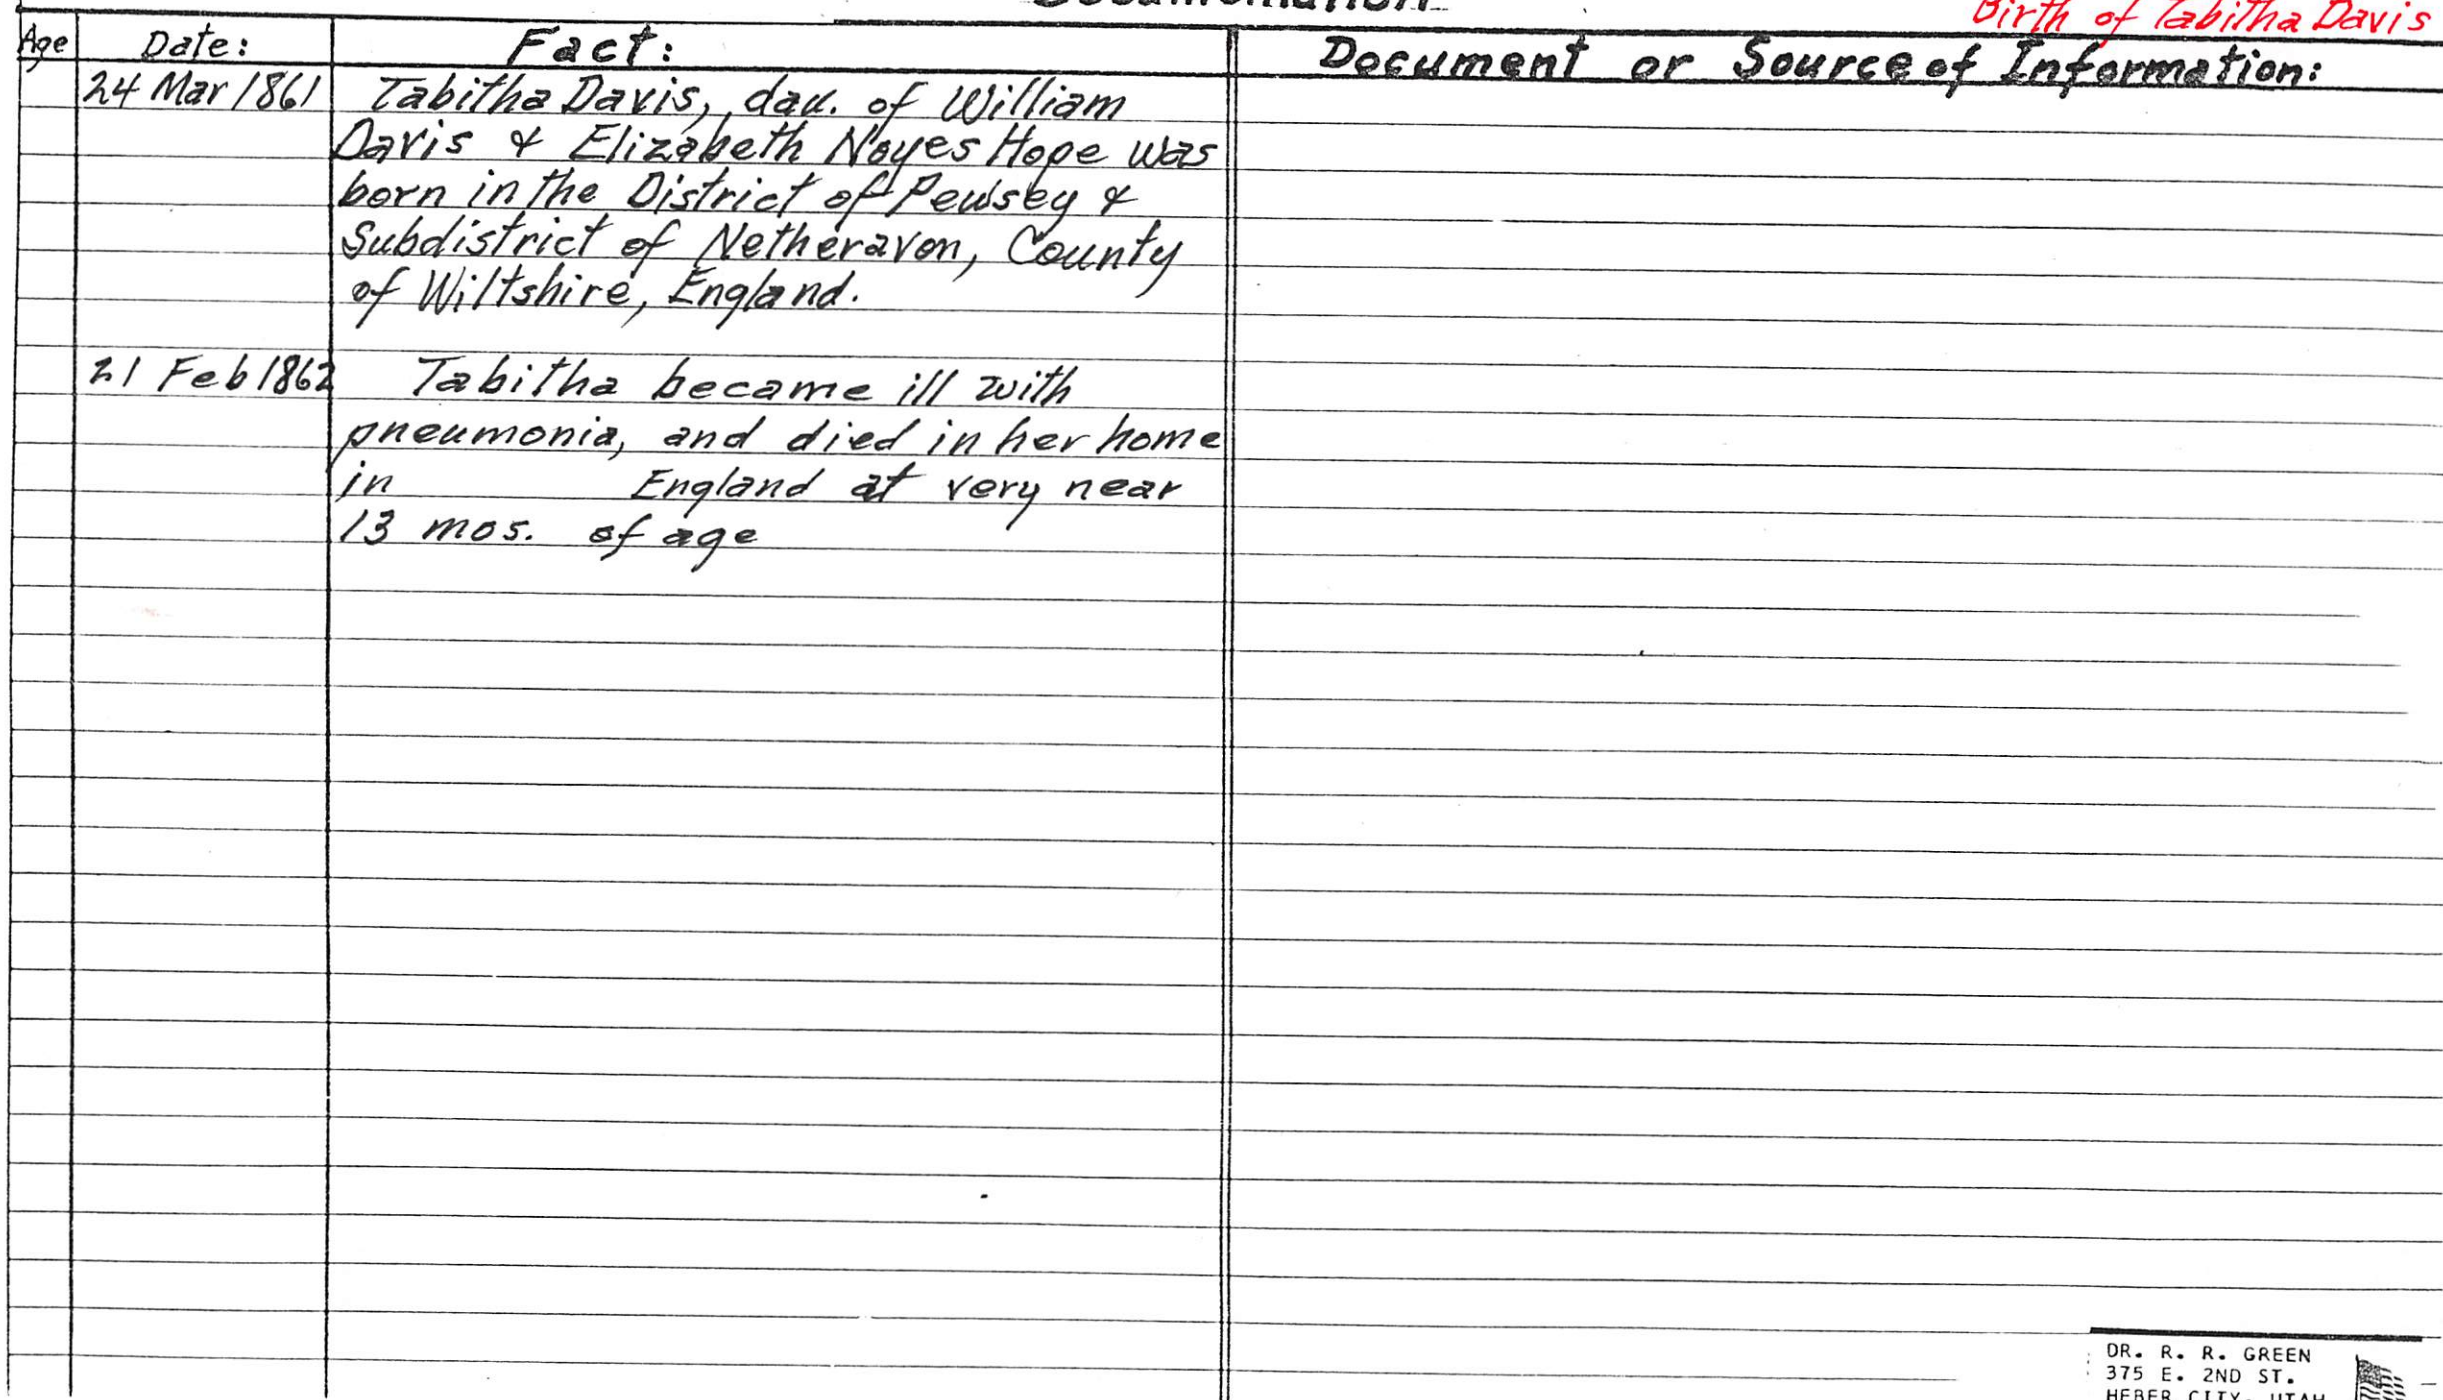 Birth of Tabitha Davis
Age Date: Fact: Document or Source of Information:
24 Mar 1861 Tabitha Davis, dau. of William
Davis & Elizabeth Noyes Hope was
born in the District of Pewsey &
Subdistrict of Netheravon, County
of Wiltshire, England.
21 Feb 1862 Tabitha became ill with
pneumonia, and died in her home
in England at very near
13 mos. of age
DR. R. R. GREEN
375 E. 2ND ST.
HEBER CITY, UTAH